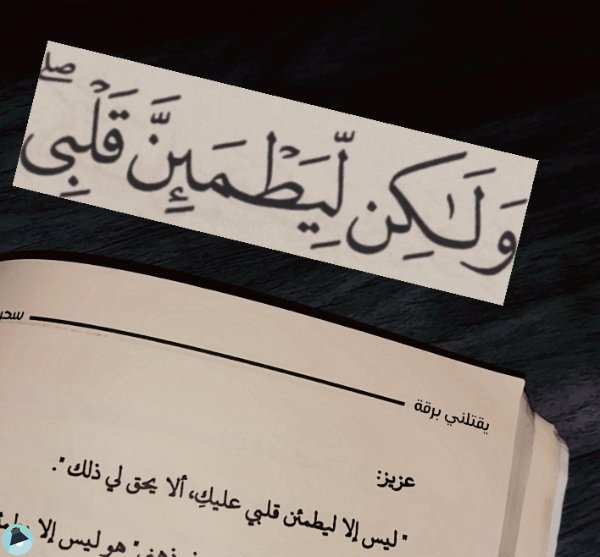 وَلَـٰكِن لِّيَطْمَئِنَّ قَلْبِى ۖ
يقتلني برقة
عزيز:
"ليس إلا ليطمئن قلبي عليكِ، ألا يحق لي ذلك".
" هو ليس إلا